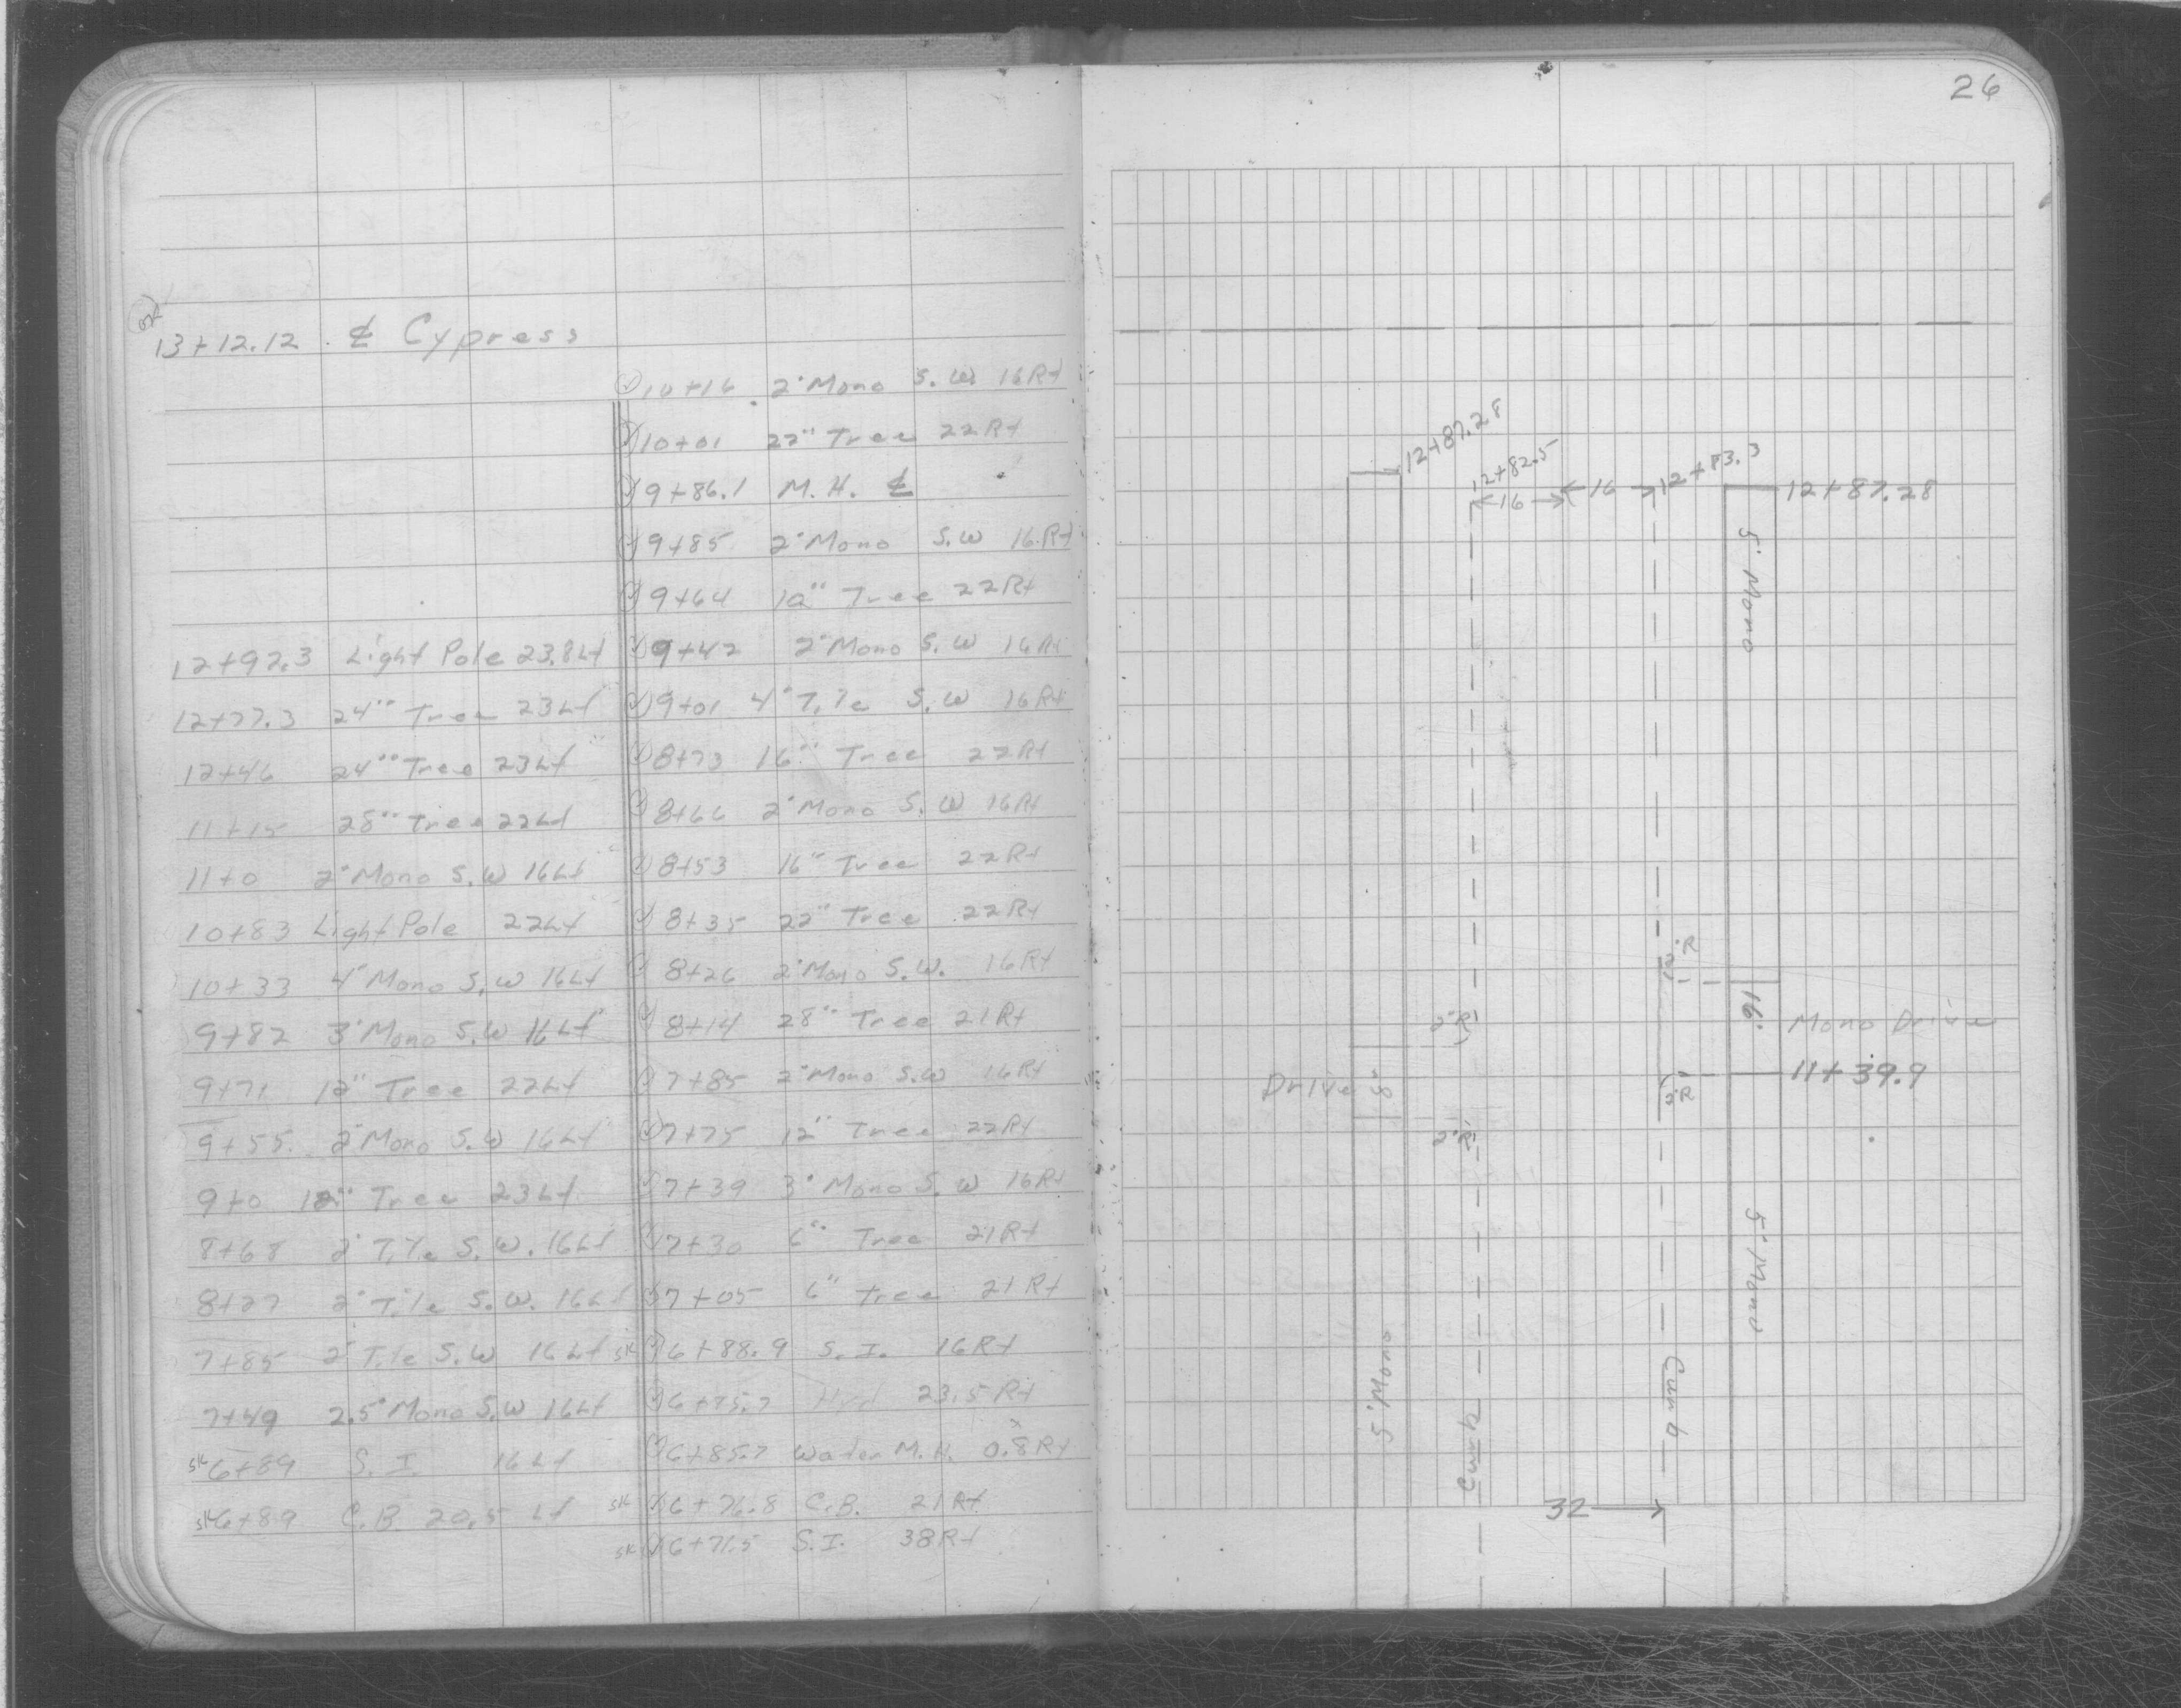 26
OK
13+12.12 ℄ Cypress
12+92.3 Light Pole 23.8Lt
12+77.3 24" Tree 23Lt
12+46 24" Tree 23Lt
11+15 28" Tree 22Lt
11+0 2' Mono S.W 16Lt
10+83 Light Pole 22Lt
10+33 4' Mono S.W 16Lt
9+82 3' Mono S.W 16Lt
9+71 12" Tree 22Lt
9+55 2' Mono S.W 16Lt
9+0 12" Tree 23Lt
8+68 2' Tile S.W. 16Lt
8+27 2' Tile S.W. 16Lt
7+85 2' Tile S.W 16Lt
7+49 2.5' Mono S.W 16Lt
SK 6+89 S.I. 16Lt
SK 6+89 C.B. 20.5 Lt
10+16 2' Mono S.W. 16Rt
10+01 22" Tree 22Rt
9+86.1 M.H. ℄
9+85 2' Mono S.W 16Rt
9+64 12" Tree 22Rt
9+42 2' Mono S.W 16Rt
9+01 4' Tile S.W 16Rt
8+73 16" Tree 22Rt
8+66 2' Mono S.W 16Rt
8+53 16" Tree 22Rt
8+35 22" Tree 22Rt
8+26 2' Mono S.W. 16Rt
8+14 28" Tree 21Rt
7+85 2' Mono S.W 16Rt
7+75 12" Tree 22Rt
7+39 3' Mono S.W 16Rt
7+30 6" Tree 21Rt
7+05 6" Tree 21Rt
SK 6+88.9 S.I. 16Rt
6+75.7 Hyd 23.5Rt
6+85.7 Water M.H. 0.8Rt
SK 6+76.8 C.B. 21Rt
SK 6+71.5 S.I. 38Rt
12+87.28
12+82.5
16
16
12+83.3
12+87.28
5' Mono
2'R
16'
Mono Drive
11+39.9
2'R
2'R
Drive 8'
2'R
5' Mono
5' Mono
Curb
Curb
32